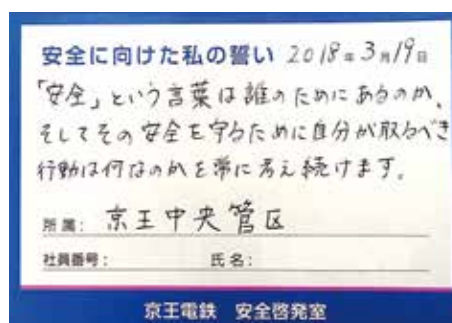 安全に向けた私の誓い 2018年3月19日
「安全」という言葉は誰のためにあるのか、
そしてその安全を守るために自分が取るべき
行動は何なのかを常に考え続けます。
所属： 京王中央管区
社員番号： 氏名：
京王電鉄 安全啓発室